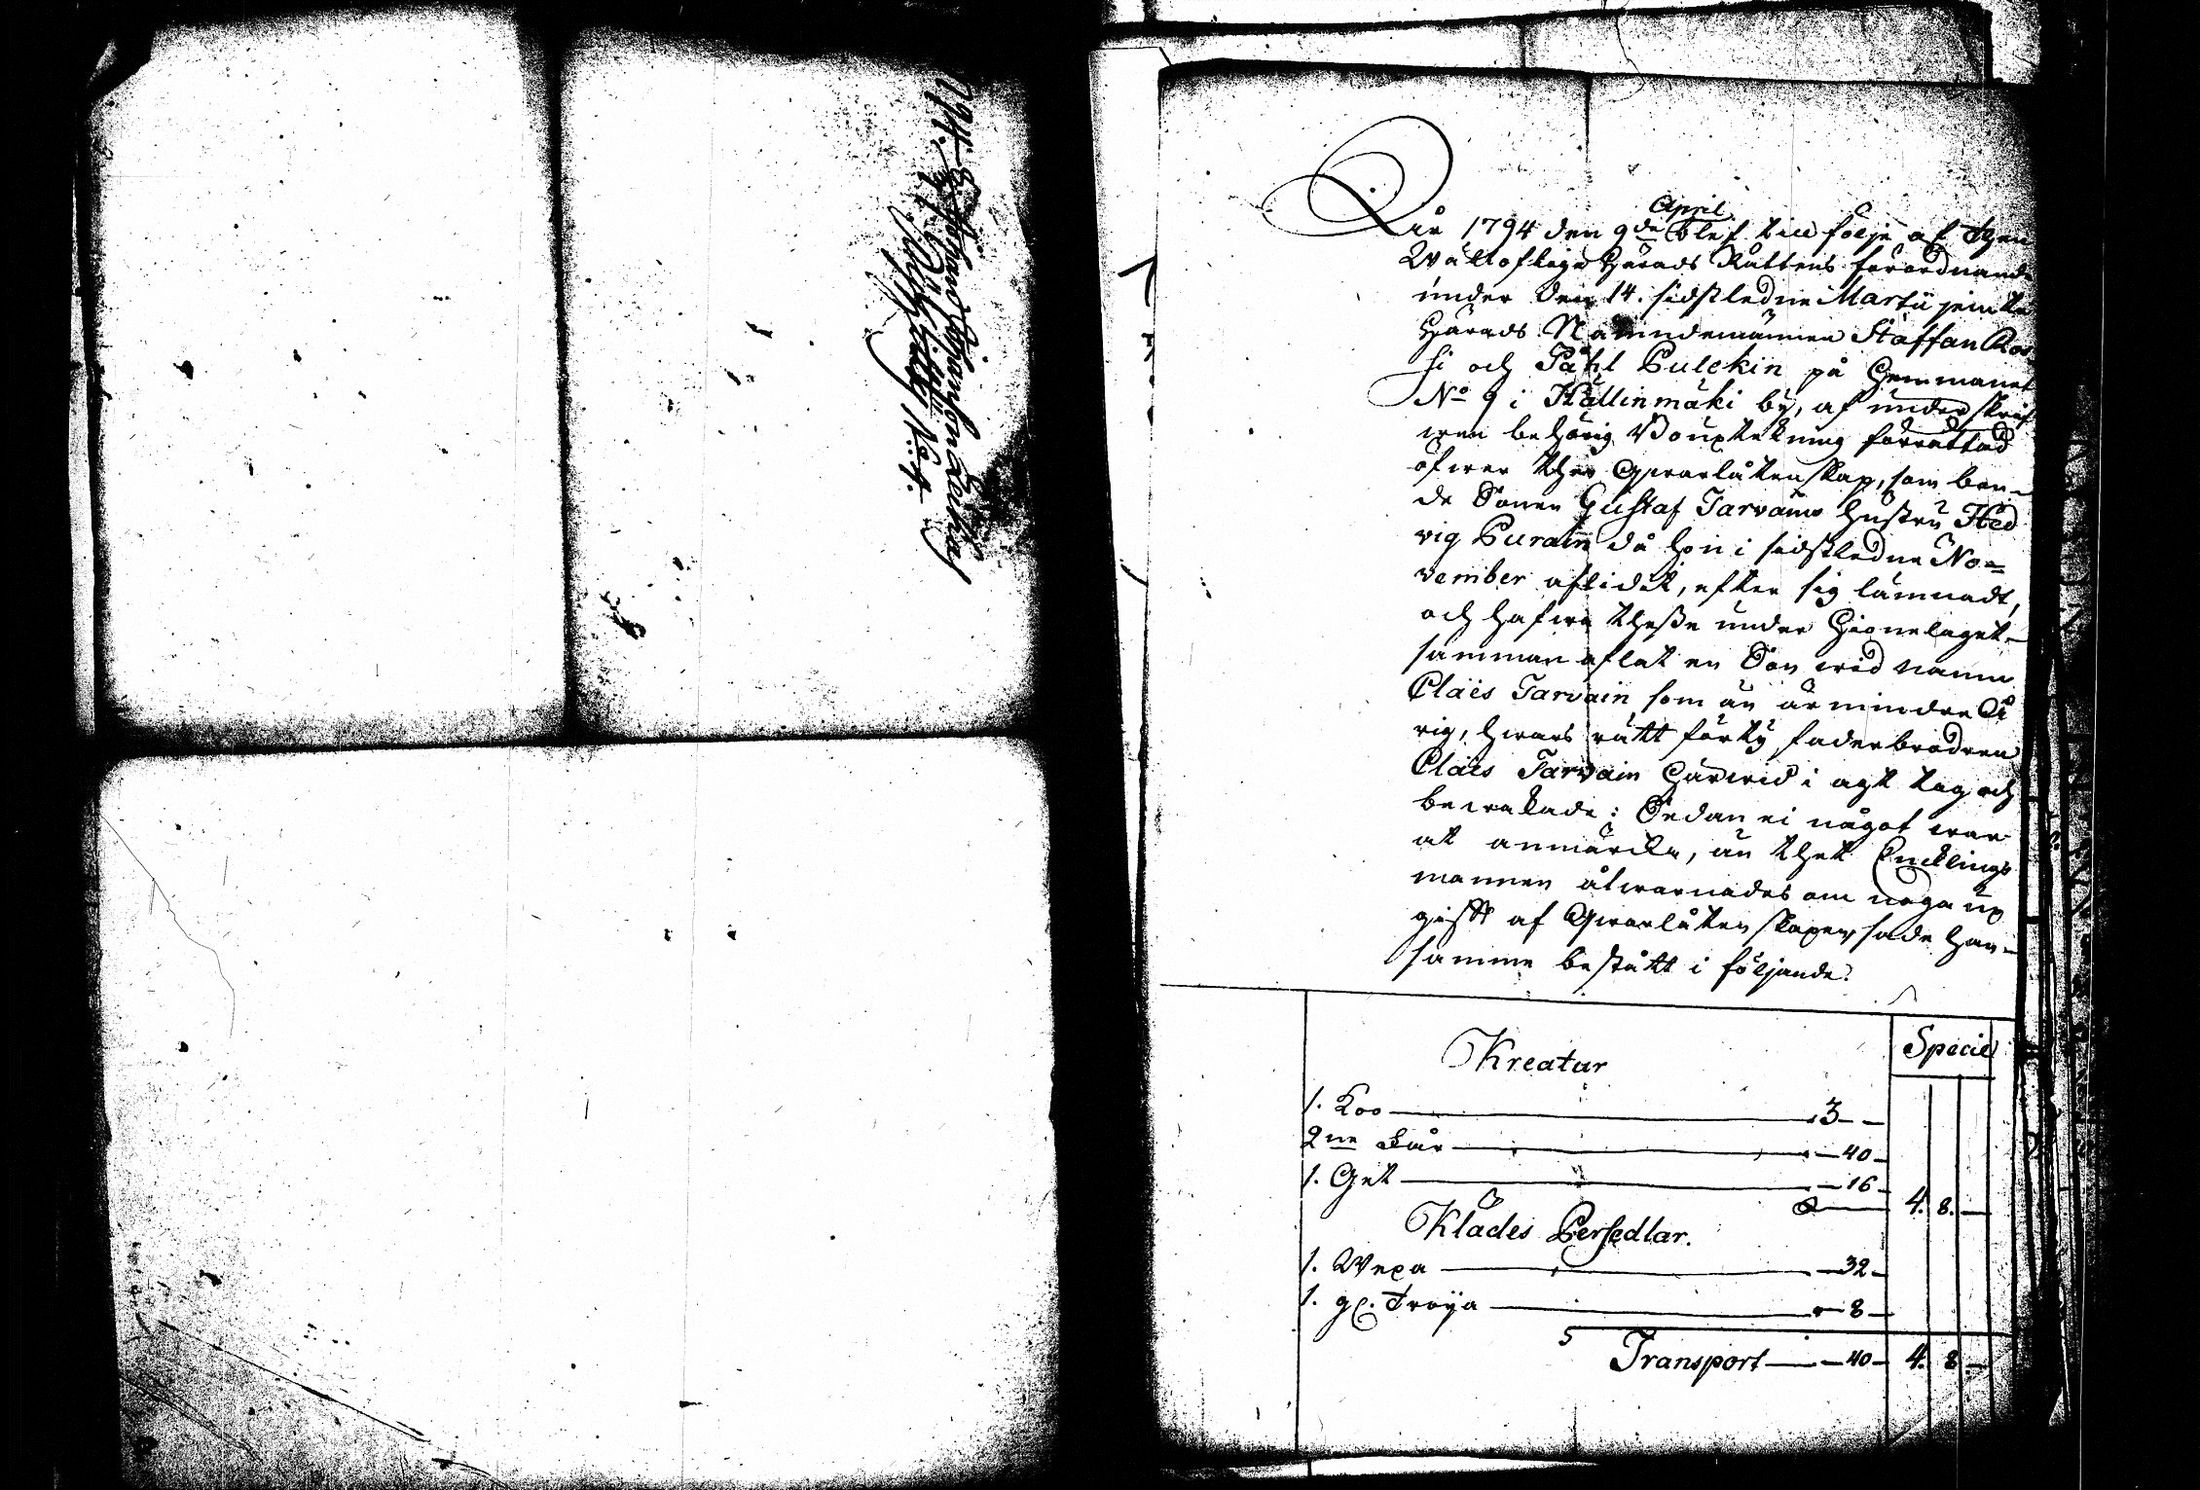 1794.
Johan Johansson Leskinen
N:o 4.
Åhr 1794 den 9de April blef till följe af then
Wällofliga Härads Rättens förordnande
under den 14. sidstledne Martii jemte
Härads Nämndemännen Staffan Ros-
si och Påhl Pulckin på Hemmanet
No 9 i Hällinmäki by, af underskrif
wen behörig Bouptekning förrättad
öfwer then Qwarlåtenskap, som bon-
de Sonen Gustaf Tarvains hustru Hed
vig Purain då hon i sidstledne No=
vember aflidit, efter sig lämnadt,
och hafwa thesse under Hionelaget
samman aflat en Son wid namn
Claës Tarvain som än är minder å
rig, hwars rätt förty faderbrodren
Claës Tarvain härwid i agt tog och
bewakade: Sedan ei något war
at anmärka, än thet Encklings
mannen åtwarnades om noga up
gifft af Qwarlåtenskapen, sade han
samma bestått i följande:
Kreatur
Specie
1. Koo 3 -
2ne Får - 40 -
1. Get - 16 - 4. 8. -
Klädes Persedlar.
1. Wepa - 32 -
1. gl. Tröija - 8 -
Transport - 40 - 4. 8 -